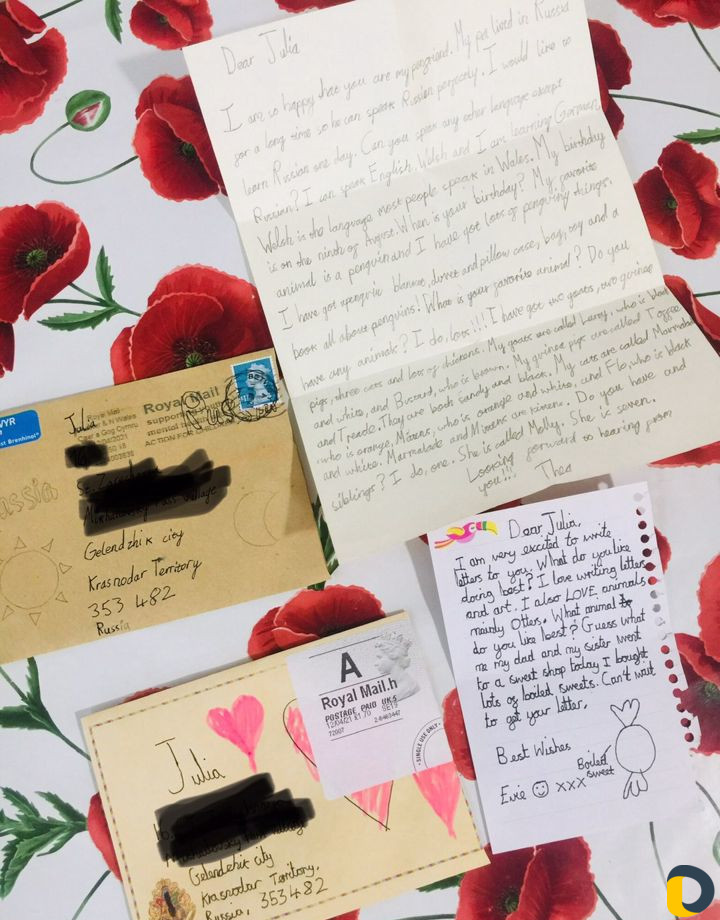 Dear Julia
I am so happy that you are my penfriend. My pa lived in Russia
for a long time so he can speak Russian perfectly. I would like to
learn Russian one day. Can you speak any other language except
Russian? I can speak English, Welsh and I am learning German.
Welsh is the language most people speak in Wales. My birthday
is on the ninth of August. When is your birthday? My favorite
animal is a penguin and I have got lots of penguiny things.
I have got a penguin blanket, duvet and pillow case, bag, toy and a
book all about penguins! What is your favorite animal? Do you
have any animals? I do, lots!!! I have got two goats, two guinea
pigs, three cats and lots of chickens. My goats are called Larry, who is black
and white, and Bustard, who is brown. My guinea pigs are called Toffee
and Treacle. They are both candy and black. My cats are called Marmalade
, who is orange, Mittens, who is orange and white, and Flo, who is black
and white. Marmalade and Mittens are kittens. Do you have and
siblings? I do, one. She is called Molly. She is seven.
Looking forward to hearing from
you!!! Thea
WYR
Royal Mail
suppor
mental
ACTION FOR
Julia
Village
Gelendzhik city
Krasnodar Territory
353 482
Russia
Russia
Dear Julia,
I am very excited to write
letters to you. What do you like
doing best? I love writing letters
and art. I also LOVE animals
mainly Otters. What animal
do you like best? Guess what
me my dad and my sister went
to a sweet shop today I bought
lots of boiled sweets. Can't wait
to get your letter.
Best Wishes
Boiled
sweet
Evie xxx
A
Royal Mail.h
POSTAGE PAID UK
12/04/21 £1.70 SE19
72007 2-8460447
SINGLE USE ONLY
Julia
Gelendzhik city
Krasnodar Territory,
Russia, 353482